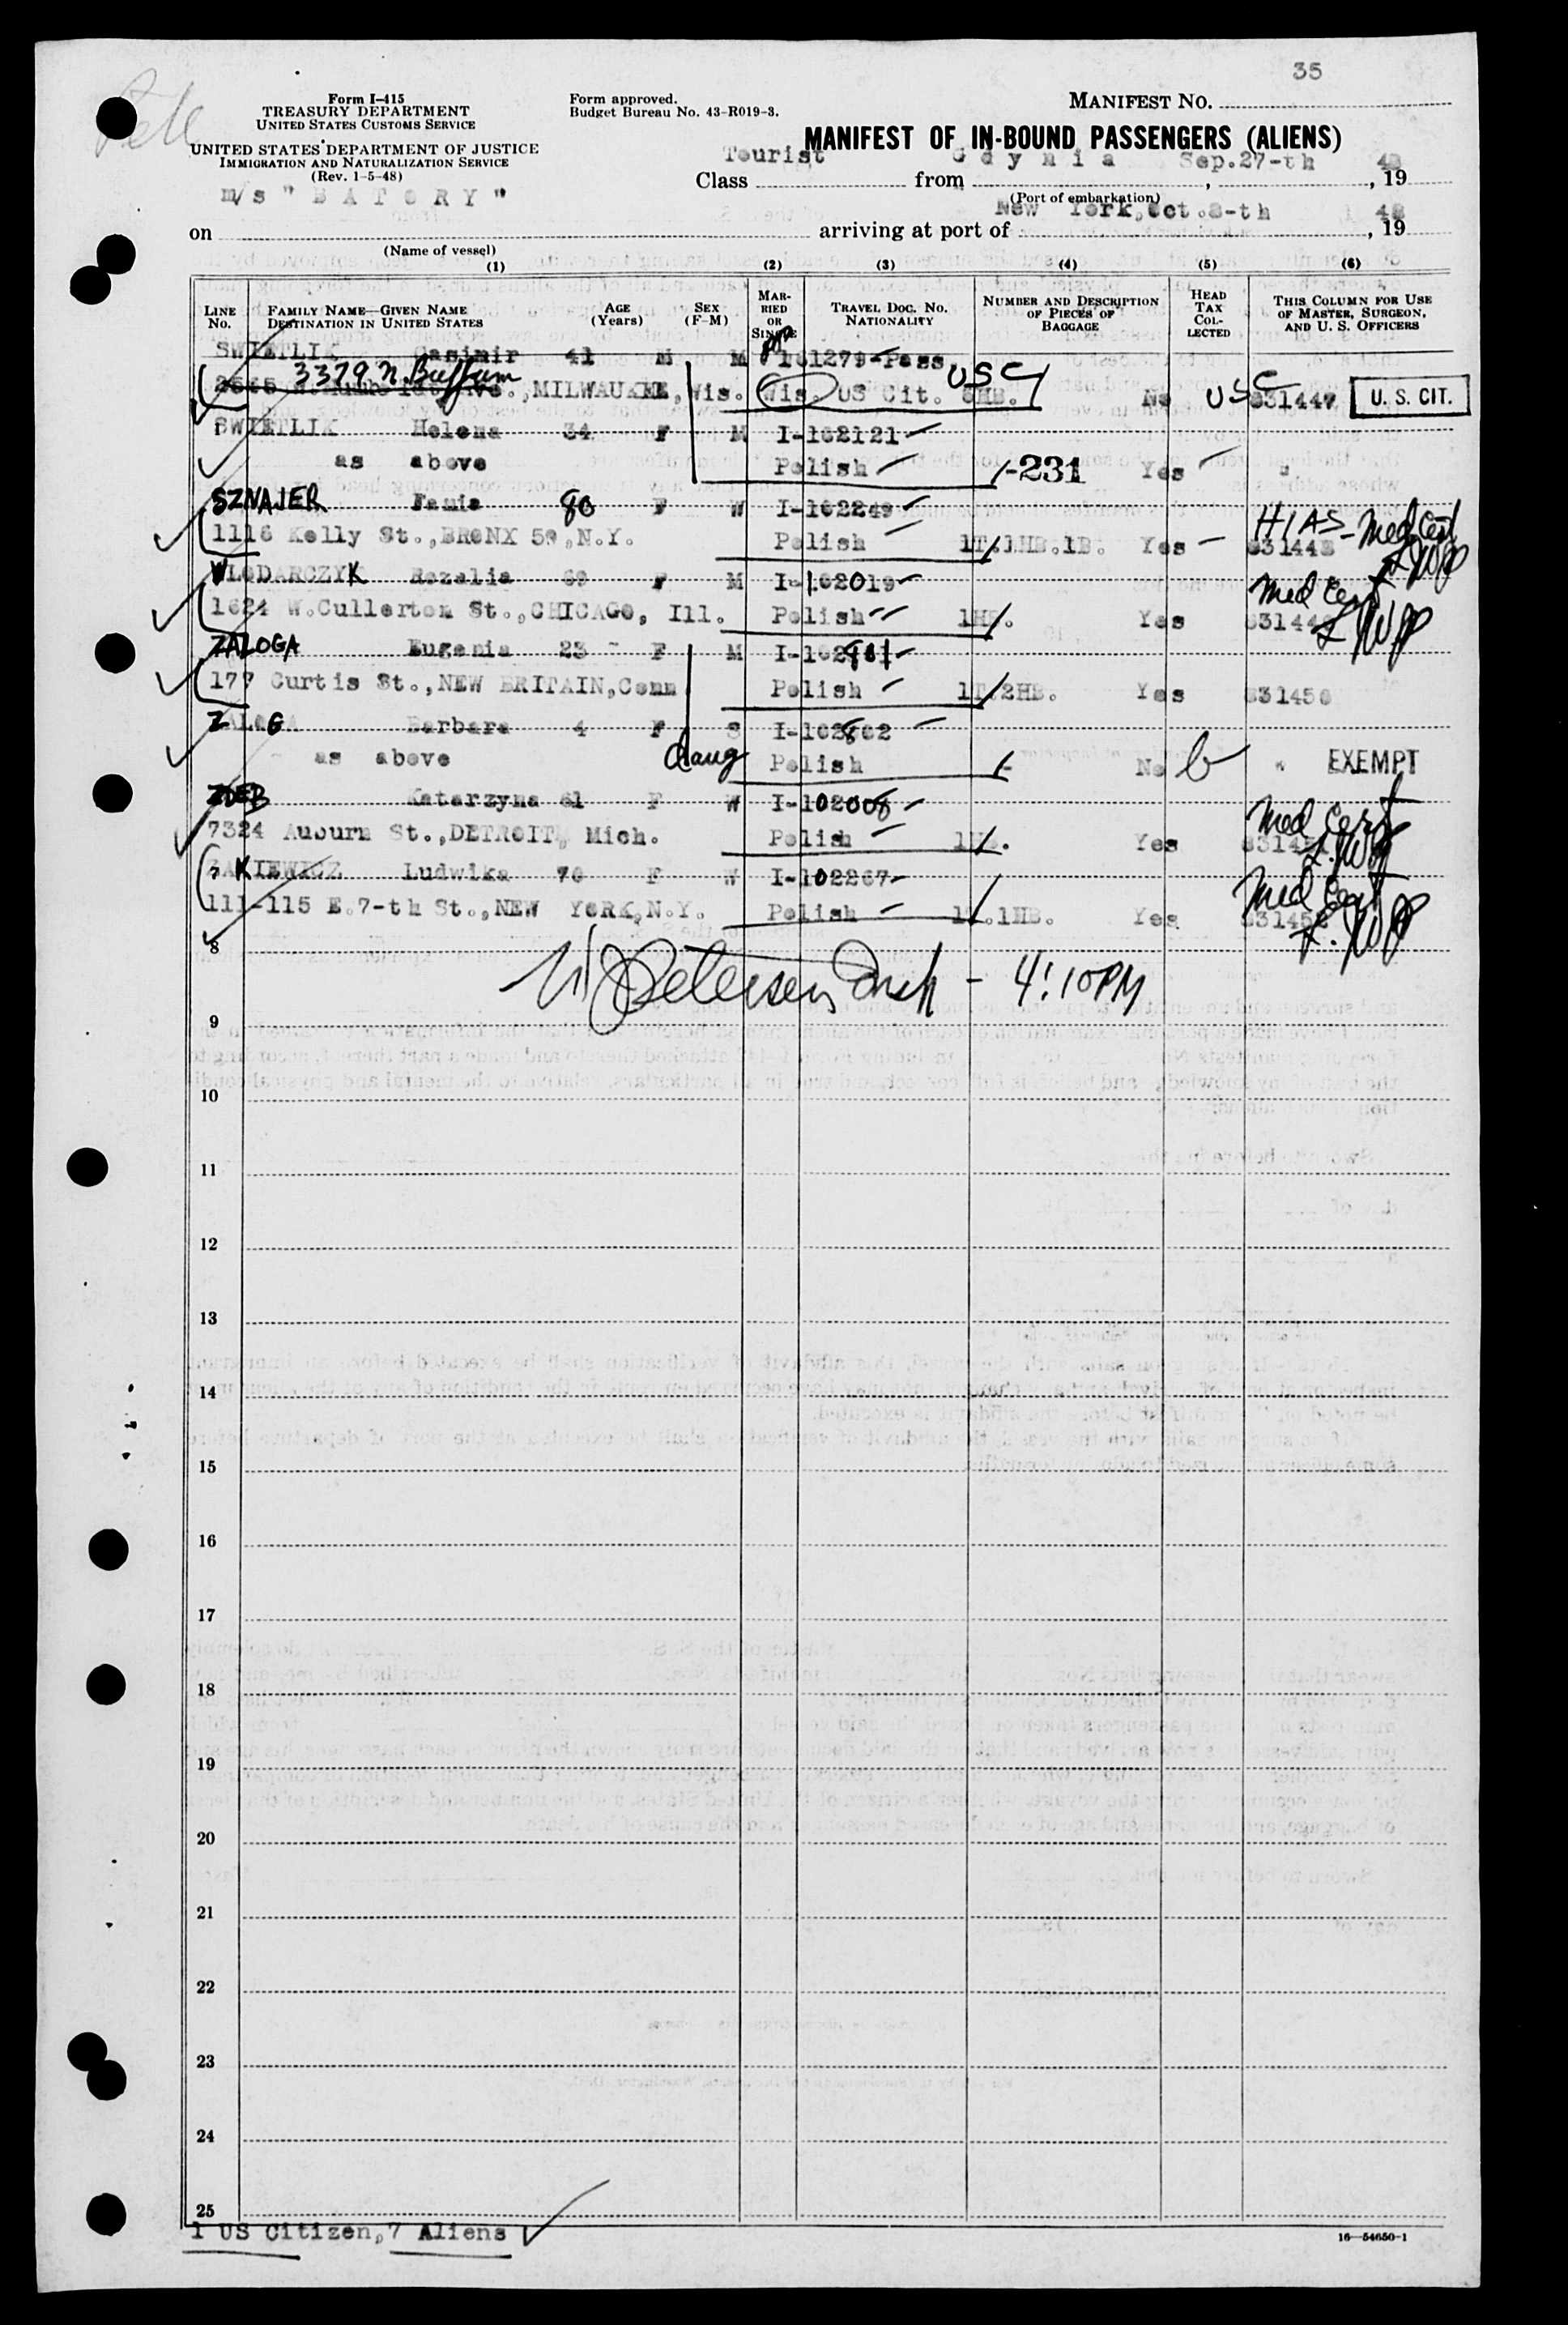 35
Form I-415
TREASURY DEPARTMENT
UNITED STATES CUSTOMS SERVICE
UNITED STATES DEPARTMENT OF JUSTICE
IMMIGRATION AND NATURALIZATION SERVICE
(Rev. 1-5-48)
Form approved.
Budget Bureau No. 43-R019-3.
MANIFEST NO.
MANIFEST OF IN-BOUND PASSENGERS (ALIENS)
Class Tourist from Gdynia Sep.27-th, 19 48
(Port of embarkation)
on m/s "BATORY" arriving at port of New York, Oct.8-th, 19 48
(Name of vessel)
(1) (2) (3) (4) (5) (6)
LINE No. FAMILY NAME—GIVEN NAME DESTINATION IN UNITED STATES AGE (Years) SEX (F-M) MARRIED OR SINGLE TRAVEL DOC. NO. NATIONALITY NUMBER AND DESCRIPTION OF PIECES OF BAGGAGE HEAD TAX COLLECTED THIS COLUMN FOR USE OF MASTER, SURGEON, AND U. S. OFFICERS
SWIETLIK Casimir 41 M M 101279-Pass
3379 N. Buffum Ave., MILWAUKEE, Wis. Wis. US Cit. 6HB. USC No USC 831447 U. S. CIT.
SWIETLIK Helena 34 F M I-102121
as above Polish -231 Yes "
SZNAJER Fania 80 F W I-102249
1116 Kelly St., BRONX 59, N.Y. Polish 1T.1HB.1B. Yes 831448 HIAS - Med Cert
WLODARCZYK Rozalia 69 F M I-102019
1624 W.Cullerton St., CHICAGO, Ill. Polish 1HB. Yes Med Cert
ZALOGA Eugenia 23 F M
177 Curtis St., NEW BRITAIN, Conn Polish 1T.2HB. Yes 831450
ZALOGA Barbara 4 F S I-102862
as above Daug Polish - No b " EXEMPT
Katarzyna 61 F W I-102008
7324 Auburn St., DETROIT, Mich. Polish Yes Med Cert
ZAKIEWICZ Ludwika 70 F W I-102267
111-115 E.7-th St., NEW YORK, N.Y. Polish 1HB. Yes Med Cert
8
Petersen - 4:10 PM
9
10
11
12
13
14
15
16
17
18
19
20
21
22
23
24
25
1 US Citizen, 7 Aliens
16—54650-1